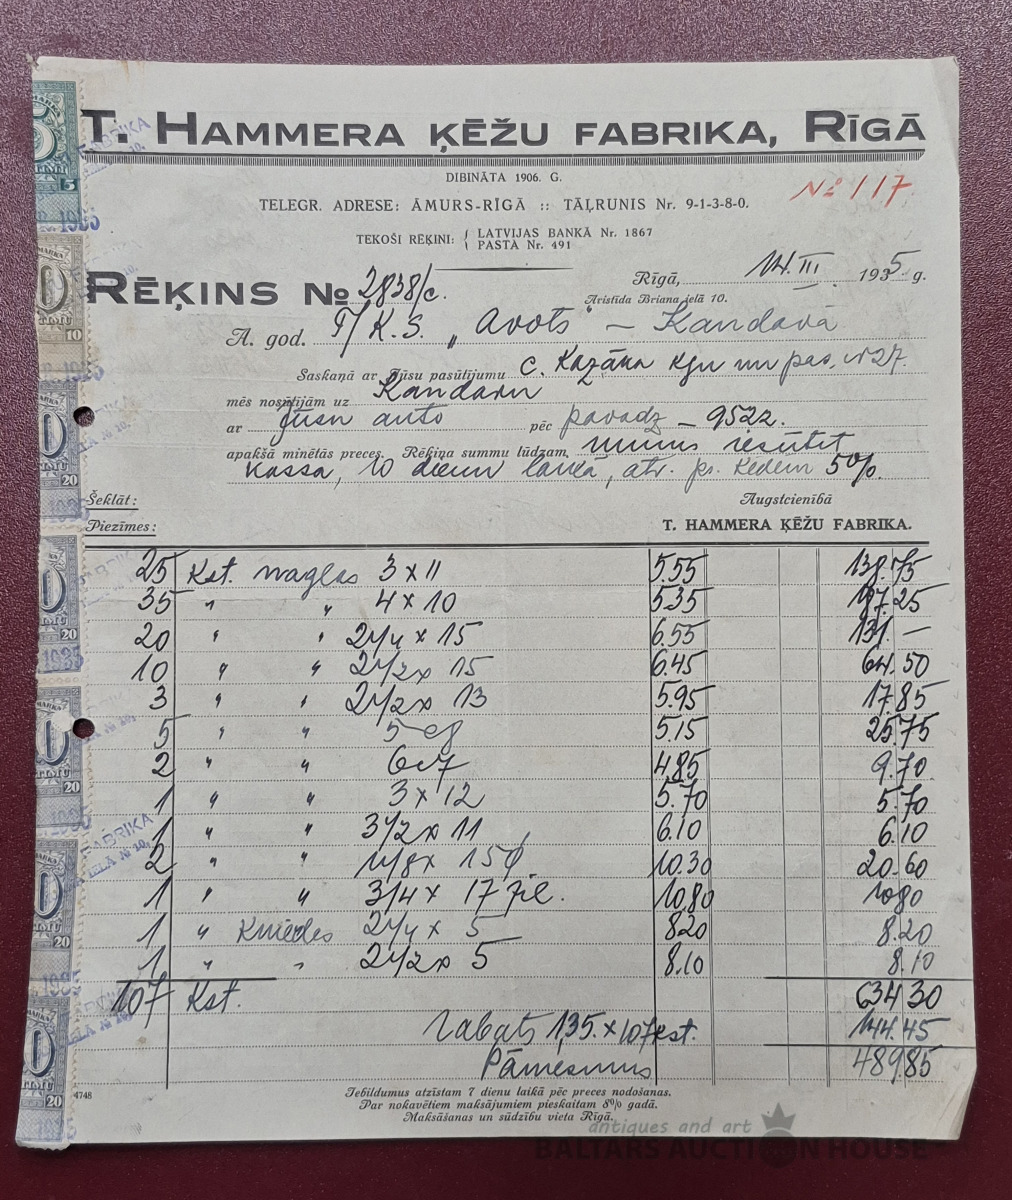 T. HAMMERA ĶĒŽU FABRIKA, RĪGĀ
DIBINĀTA 1906. G.
№ 117
TELEGR. ADRESE: ĀMURS-RĪGĀ :: TĀĻRUNIS Nr. 9-1-3-8-0.
TEKOŠI RĒĶINI: LATVIJAS BANKĀ Nr. 1867
PASTĀ Nr. 491
Rīgā, 14. III 1935. g.
Aristīda Briana ielā 10.
RĒĶINS № 2838/c.
A. god. T/K.S. „Avots" – Kandavā
Saskaņā ar Jūsu pasūtījumu c. Kazāka kgu un pas. №27.
mēs nosūtījām uz Kandavu
ar Jūsu auto pēc pavadz – 9522.
apakšā minētās preces. Rēķina summu lūdzam, mums iesūtīt
kassa, 10 dienu laikā, atv. pr. ķēdēm 5%.
Šeklāt: Augstcienībā
Piezīmes: T. HAMMERA ĶĒŽU FABRIKA.
25 Kst. naglas 3 x 11 5.55 138.75
35 " " 4 x 10 5.35 187.25
20 " " 2 1/4 x 15 6.55 131.—
10 " " 2 1/2 x 15 6.45 64.50
3 " " 2 1/2 x 13 5.95 17.85
5 " " 5 x 8 5.15 25.75
2 " " 6 x 7 4.85 9.70
1 " " 3 x 12 5.70 5.70
1 " " 3 1/2 x 11 6.10 6.10
2 " " 1 1/8 x 15 10.30 20.60
1 " " 3/4 x 17 zil. 10.80 10.80
1 " Kniedes 2 1/4 x 5 8.20 8.20
1 " " 2 1/2 x 5 8.10 8.10
107 Kst. 634.30
rabats 1,35. x 107 kst. 144.45
Pāmesmus 489.85
4748
Iebildumus atzīstam 7 dienu laikā pēc preces nodošanas.
Par nokavētiem maksājumiem pieskaitam 8% gadā.
Maksāšanas un sūdzību vieta Rīgā.
antiques and art
BALTARS AUCTION HOUSE